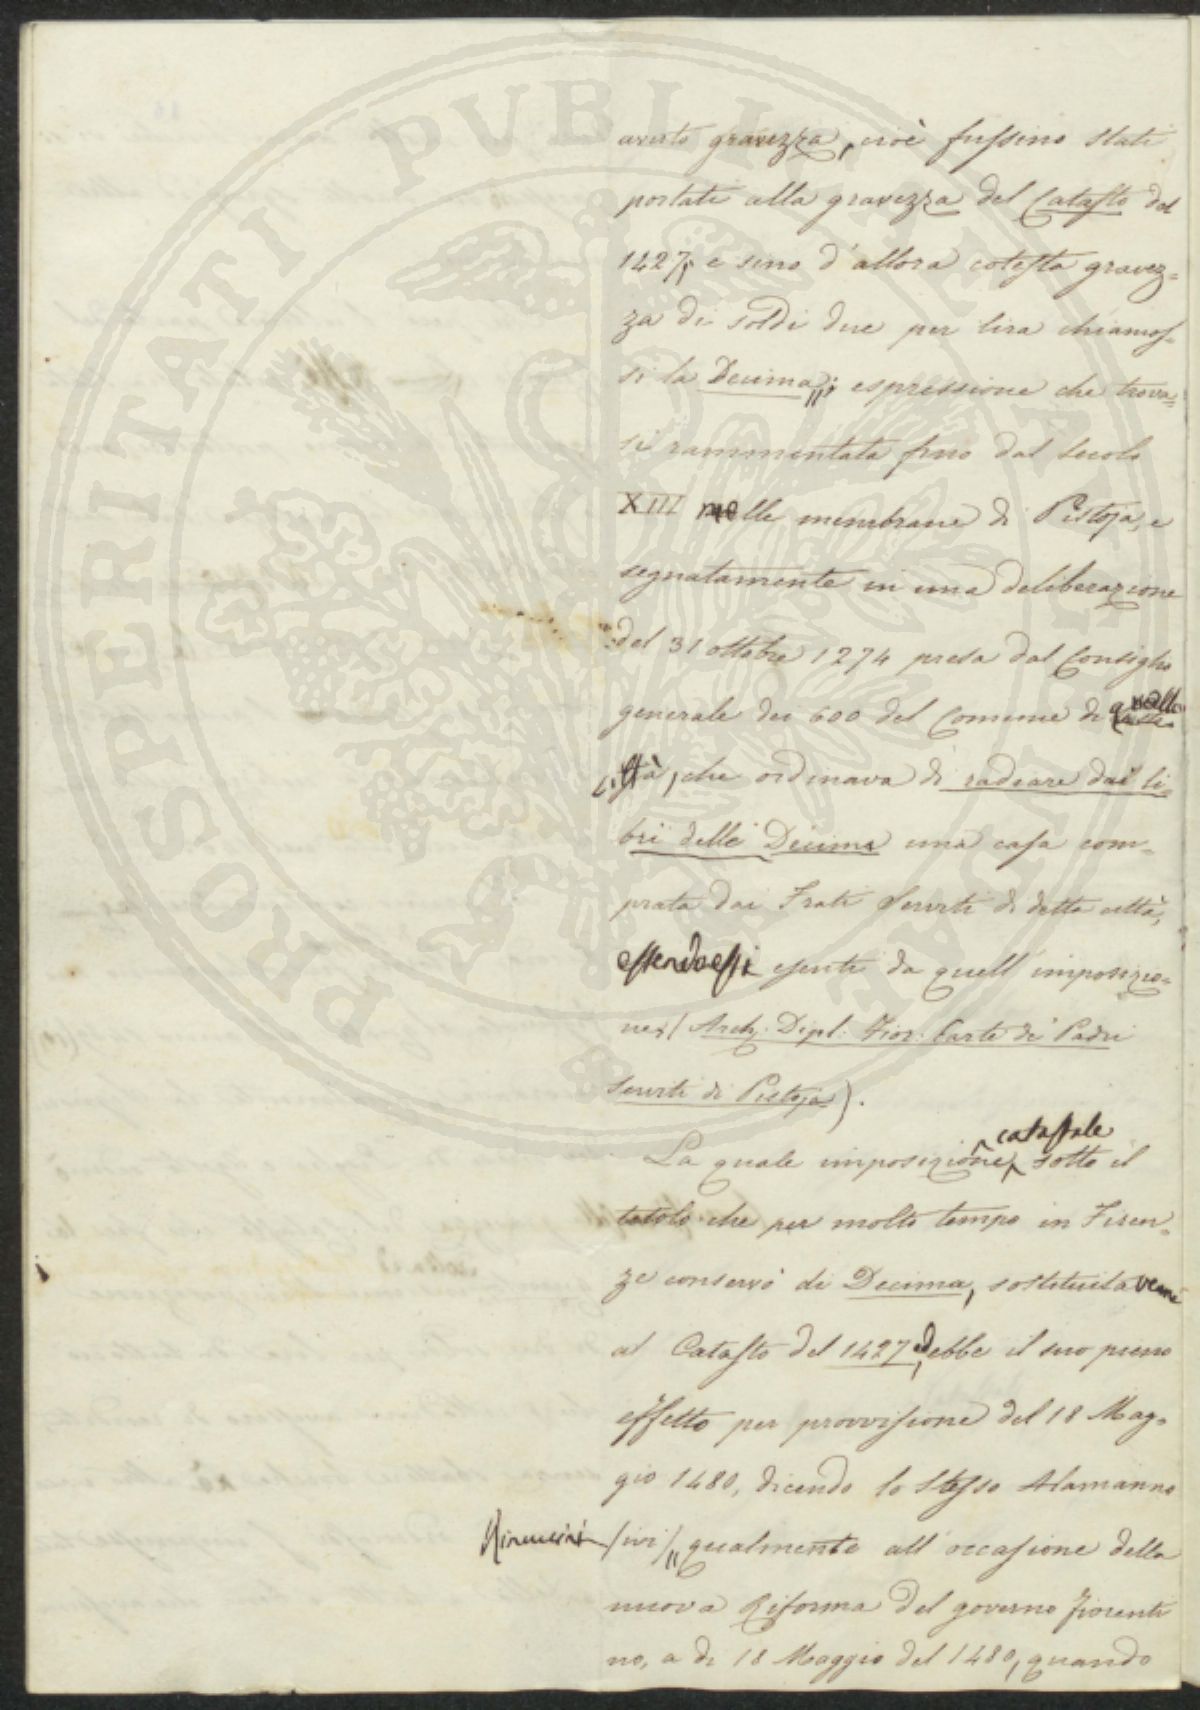 avuto gravezza, cioè fussino stati
portati alla gravezza del Catasto del
1427, e sino d'allora cotesta gravez=
za di soldi due per lira chiamos=
si la Decima,,; espressione che trova=
si rammentata fino dal secolo
XIII nelle membrane di Pistoja, e
segnatamente in una deliberazione
del 31 ottobre 1274 presa dal Consiglio
generale dei 600 del Comune di quella
città, che ordinava di radiare dai li=
bri delle Decime una casa com=
prata dai Frati Serviti di detta città,
essendo essi esenti da quell'imposizio=
ne (Arch. Dipl. Fior. Carte de' Padri
Serviti di Pistoja).
La quale imposizione catastale sotto il
titolo che per molto tempo in Firen=
ze conservò di Decima, sostituita venne
al Catasto del 1427, ed ebbe il suo pieno
effetto per provvisione del 18 Mag=
gio 1480, dicendo lo stesso Alamanno
Rinuccini (ivi) ,,qualmente all'occasione della
nuova Riforma del governo fiorenti
no, a dì 18 Maggio del 1480, quando
PROSPERITATI PUBLICAE AUGENDAE